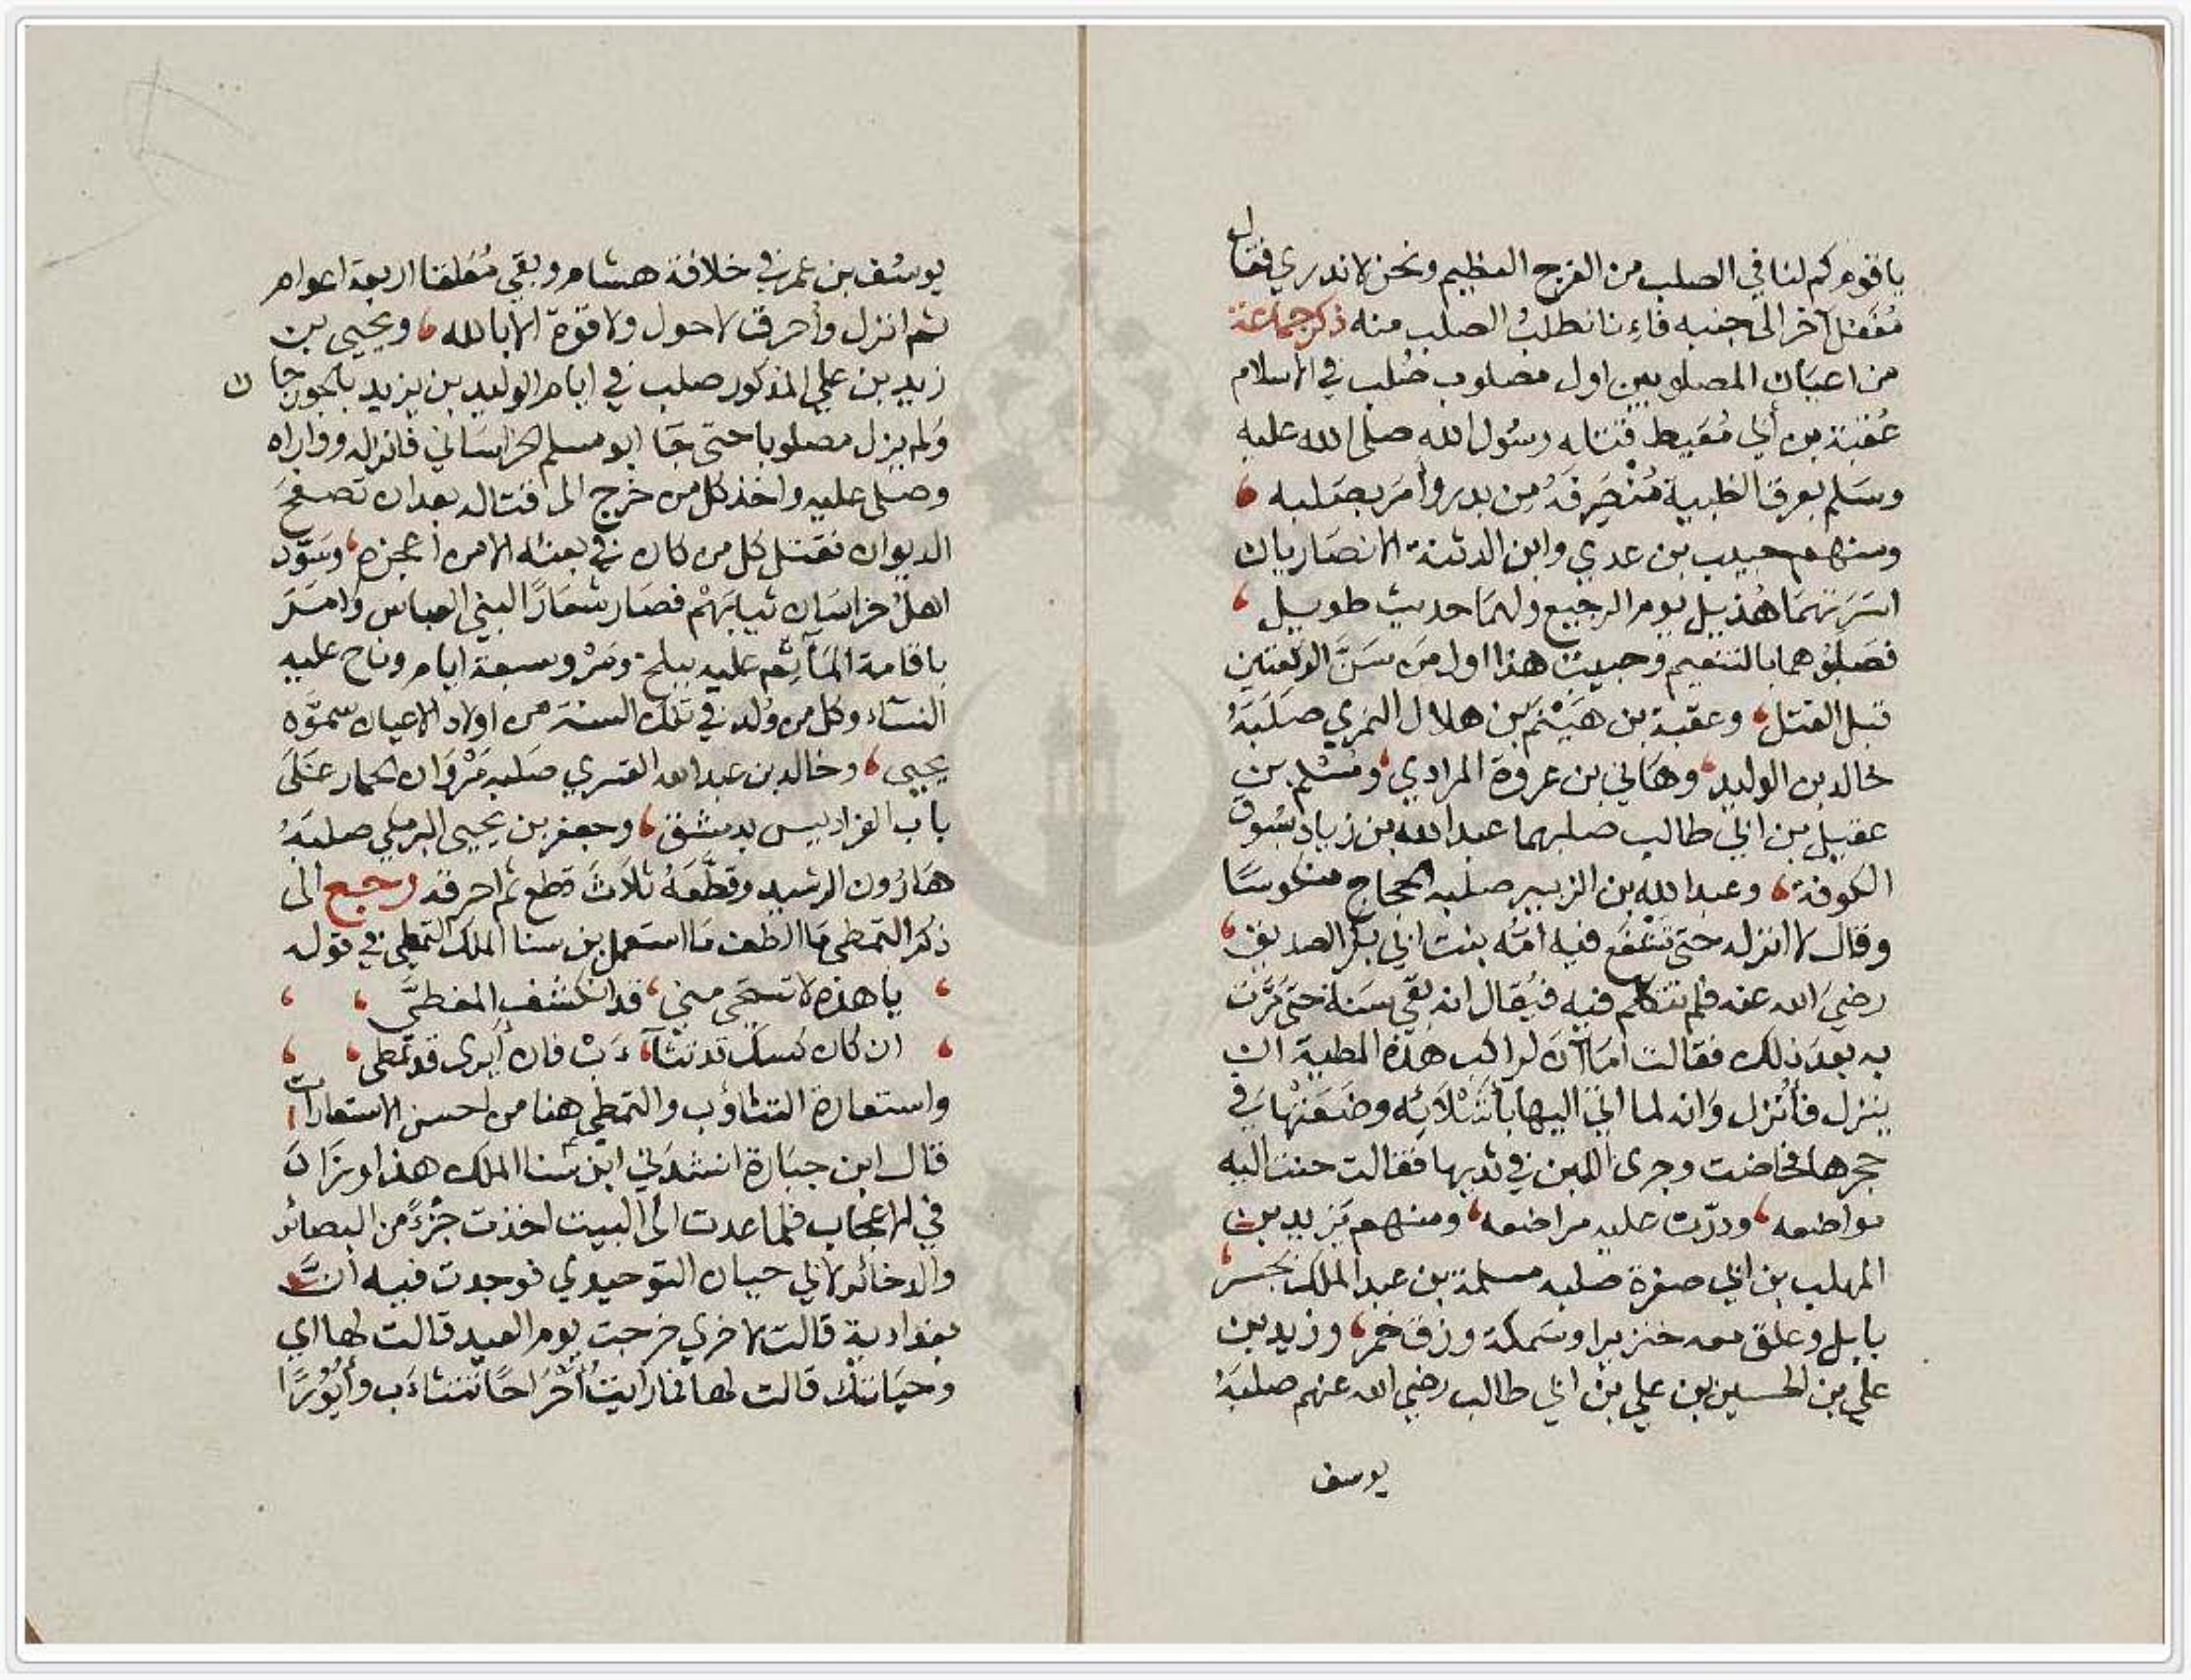 ياقوم كم لنا في الصلب من الفرج العظيم ونحن لا ندري فقال
مُغَفل آخر الى جنبه فاءِنا نطلبُ الصلب منه ذكر جماعة
من اعيان المصلوبين اول مصلوب صُلب في الاسلام
عُقبة بن أبي مُعَيط قتله رسُول الله صلى الله عليه
وسَلم بعرق الظبية مُنْصَرفَهُ من بدر وأمَر بصَلبه
ومنهم حبيب بن عدي وابن الدثنة الانصاريان
اسَرَتهمَا هُذيل يوم الرجيع ولهمَا حديث طويل
فصَلبُوهما بالتنعيم وحبيبٌ هذا اول مَن سَنَّ الركعتين
قبل القتل وعقبة بن هَيْثَم بن هلال النمري صَلَبَهُ
خالد بن الوليد وهَاني بن عروة المرادي ومُسْلم بن
عقيل بن ابي طالب صلبهما عبد الله بن زياد بسُوق
الكوفة وعبد الله بن الزبير صلبه الحجاج منكوسًا
وقال لا انزله حتى تشفَع فيه امّه بنت ابي بكر الصديق
رضيَ الله عنه فلم تتكلم فيه فيُقال انه بَقي سَنة حتى مَرَّت
به بعدَ ذلك فقالت امَا آنَ لراكب هذه المطية ان
ينزل فأُنزل وَانه لما اتي اليها بأشْلَائِه وضَعَتْهَا في
حجرها فحاضت وجرى اللبن في ثديها فقالت حنت اليه
مواضعه ودرّت عليه مراضعه ومنهم يَزيد بن
المهلب بن ابي صفرة صلبه مسلمة بن عبد الملك بجسر
بابل وعلق معه خنزيرا وسَمكة وزق خمر وزيد بن
علي بن الحسين بن علي بن ابي طالب رضي الله عنهم صلبَهُ
يوسف
يوسُف بن عمر في خلافة هشام وبقي مُعَلقا اربعة اعوام
ثم انزل وأحرق لا حول ولا قوة الا بالله ويحيى بن
زيد بن علي المذكور صلب في ايام الوليد بن يزيد بالجوزجان
وَلم يزل مصلوبا حتى جَا ابو مسلم الخراسَاني فانزله وواراه
وصَلى عليه واخذ كل من خرج الى قتاله بعد ان تصفحَ
الديوان فقتل كل من كان في بعثه الا من اعجزه وسَوَّد
اهلُ خراسَان ثيابَهمْ فصَار شعَارًا لبني العباس وَامَرَ
باقامة المَآتم عليه ببلخ ومَرْو سبعة ايام وناح عليه
النسَاء وكل من وُلد في تلك السنة من اولاد الاعيان سموّه
يحيى وخالد بن عبد الله القسري صَلبه مَرْوَان الحمار عَلَى
باب الفراديس بدمشق وجعفر بن يحيى البرمكي صلبَهُ
هَارُون الرشيد وقَطَّعَهُ ثلاثَ قطع ثم احرقه رجع الى
ذكر التمطي مَا الطف مَا استعمل بن سنا الملك التمطي في قوله
يا هذه لا تستحي مني قد انكشف المغطىَّ
ان كان كسك قد تثآ ءَبْ فان أيرى قد تمطى
واستعارة التثاؤب والتمطي هنا من احسن الاستعارات
قال ابن جبَارة انشدَني ابن سَنا الملك هذا ونزلت
في الاعجاب فلما عدت الى البيت اخذت جُزْءً من البصائر
والدخائر لابي حيان التوحيدي فوجدت فيه انَّ
بغدادية قالت لاخري خرجت يوم العيد قالت لها اي
وحيَاتكْ قالت لها فمَا رايتُ قالت أَحْرَاحًا تتثاءَب وأُيُوْرًا